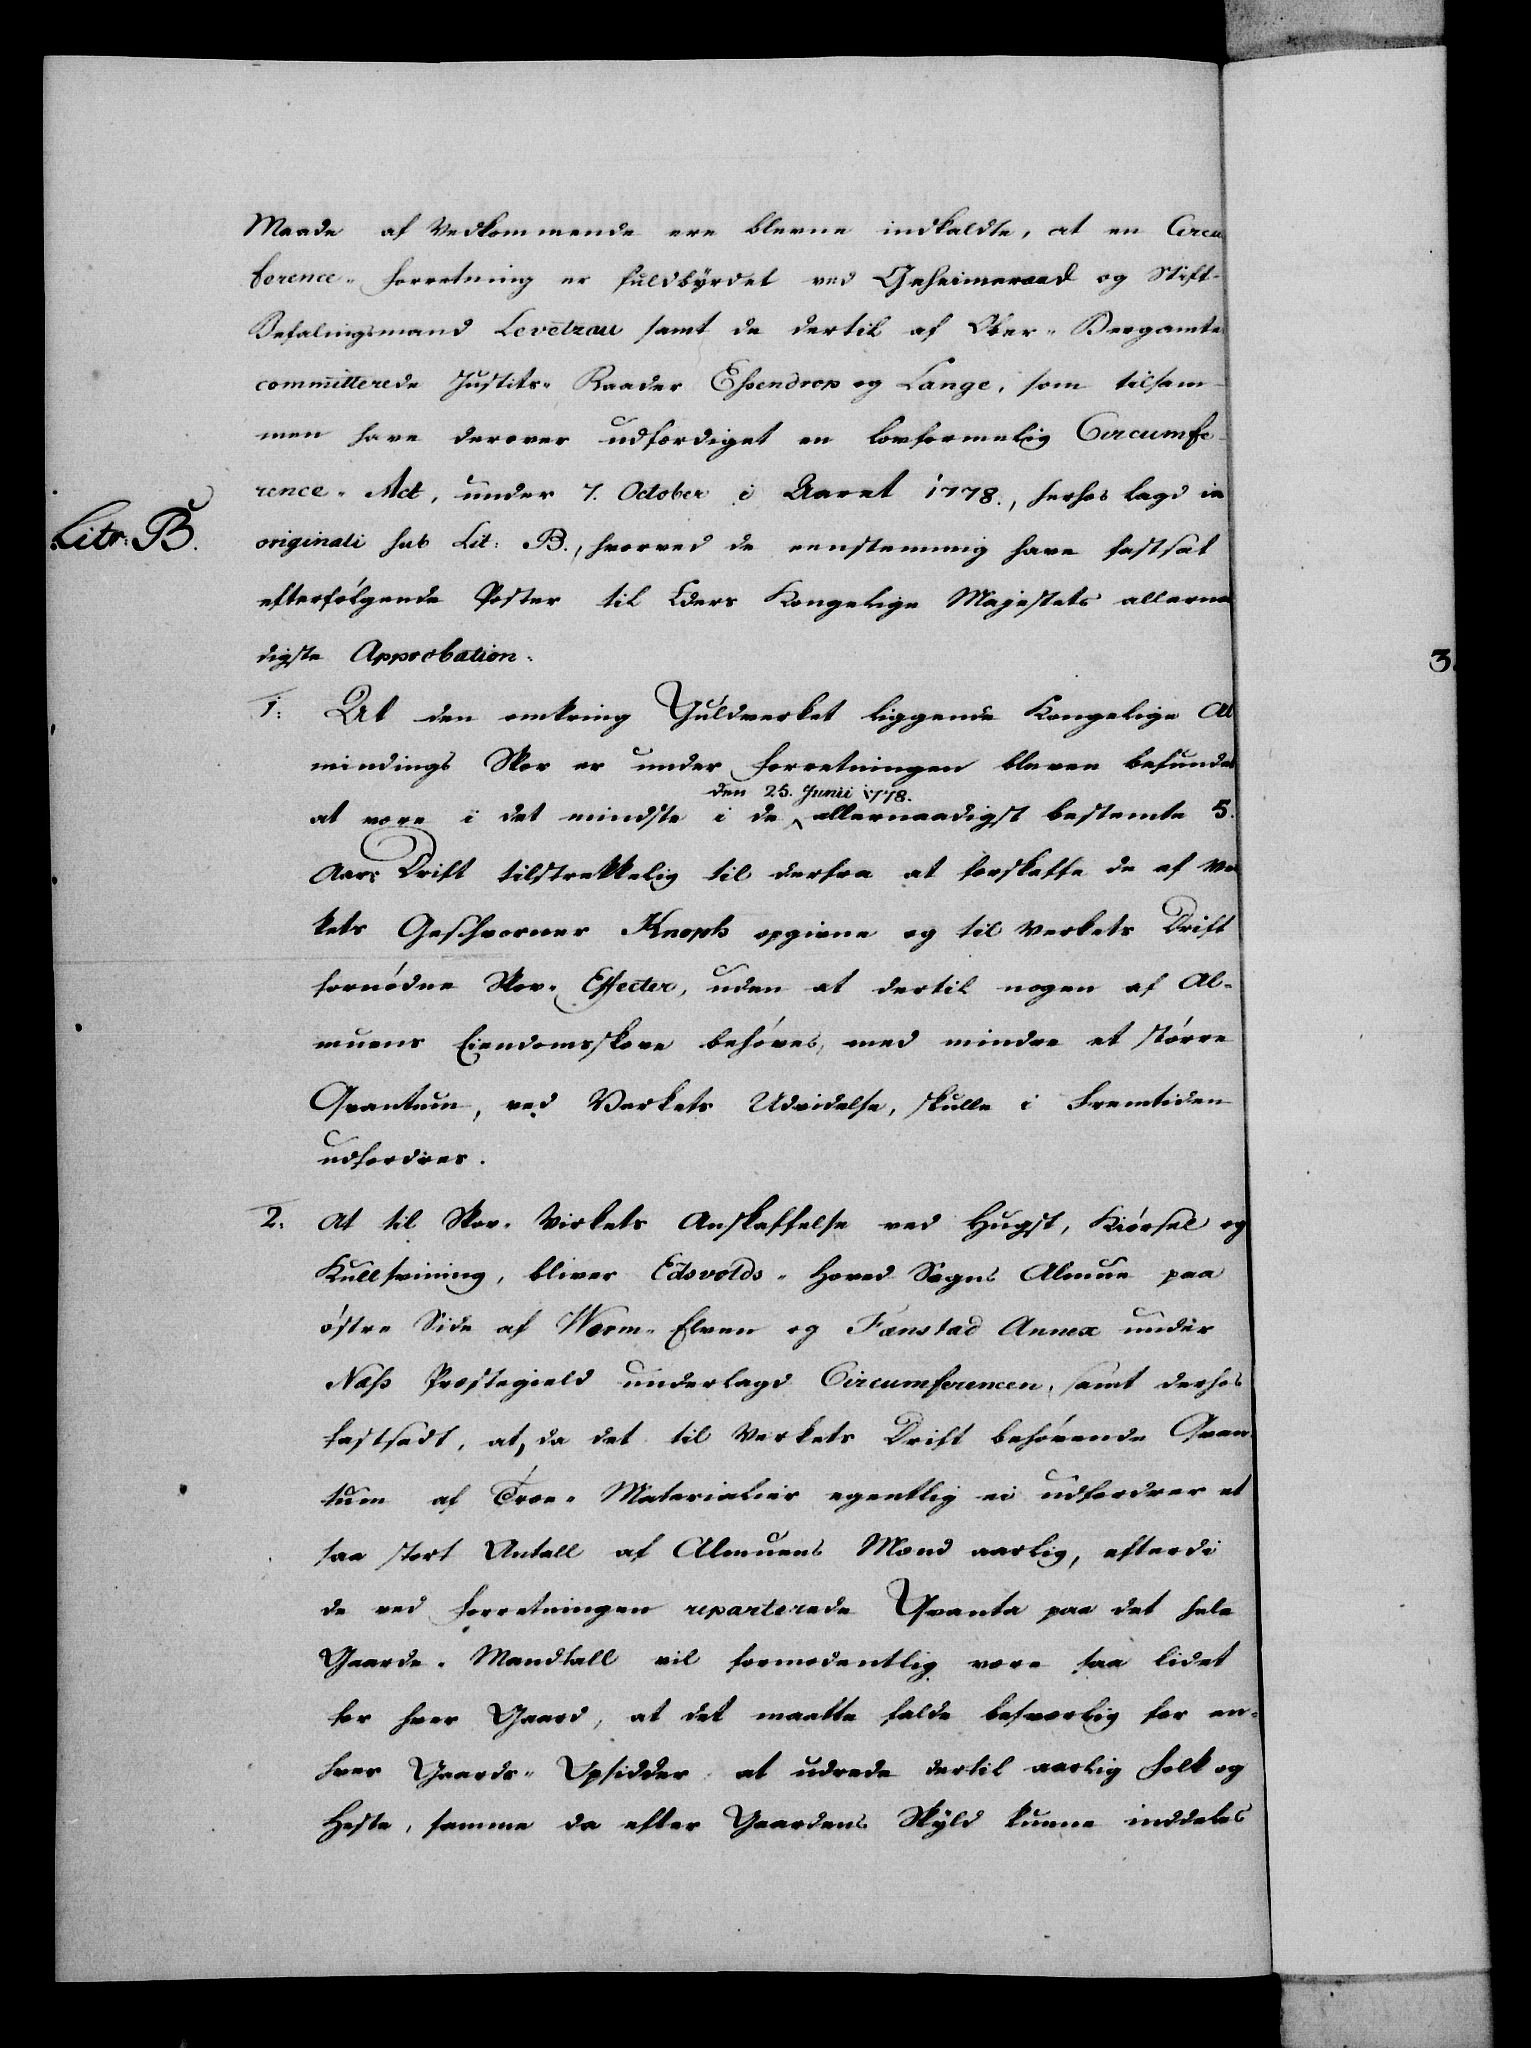 Maade af Vedkommende ere blevne indkaldte, at en Circum
ference- Forretning er fuldbyrdet ved Geheimeraad og Stift-
Befalingsmand Levetzau samt de dertil af Ober- Bergamtet
committerede Justits- Raader Essendrop og Lange, som tilsam-
men have derover udfærdiget en lovformelig Circumfe-
rence- Act, under 7. October i Aaret 1778., herhos lagd in
Litr: B.
originali sub Lit: B., hvorved de eenstemmig have fastsat
efterfølgende Poster til Eders Kongelige Majestets allernaa
digste Approbation.
1. At den omkring Guldverket liggende Kongelige Al
mindings Skov er under Forretningen bleven befunden
den 25. Junii 1778.
at være i det mindste i de allernaadigst bestemte 5.
Aars Drift tilstrekkelig til derfra at forskaffe de af Ver
kets Geschworner Knoph opgivne og til Verkets Drift
fornødne Skov- Effecter, uden at dertil nogen af Al-
muens Eiendomsskove behøves, med mindre et større
Qvantum, ved Verkets Udvidelse, skulle i Fremtiden
udfordres.
2. At til Skov- Virkets Anskaffelse ved Hugst, Kiørsel og
Kullsvining, bliver Edsvolds- Hoved Sogns Almue paa
østre Side af Worm- Elven og Fænstad Annex under
Næss Præstegield underlagd Circumferencen, samt derhos
fastsadt, at, da det til Verkets Drift behøvende Qvan-
tum af Træe- Materialier egentlig ei udfordrer et
saa stort Antall af Almuens Mænd aarlig, efterdi
de ved Forretningen reparterede Qvanta paa det hele
Gaarde- Mandtall vil formodentlig være saa lidet
for hver Gaard, at det maatte falde besværlig for en-
hver Gaards- Opsidder at udrede dertil aarlig Folk og
Heste, samme da efter Gaardens Skyld kunne inddeles
3.